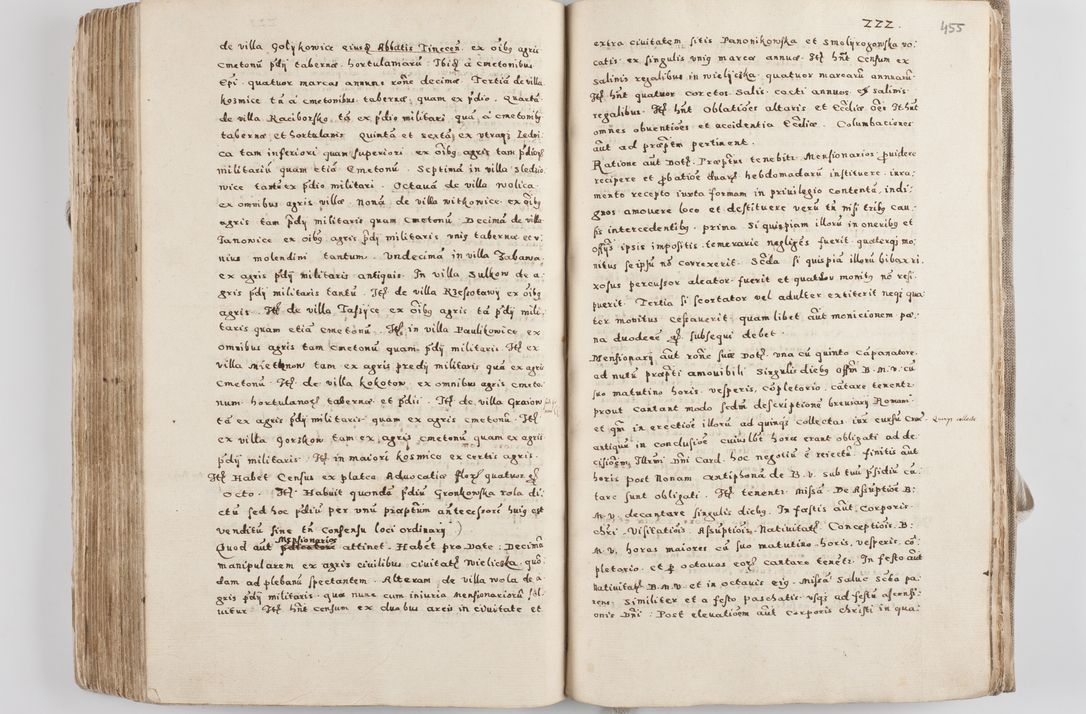 de villa Golykowice eiusq Abbatis Tinecen̄. ex oi̅bꝫ agris
cmetonū p̄dij tabernæ hortulanarū. Ibidē à cmetonibus
Ep̄i quatuor marcas annuæ. rōne decimæ. Tertiā de villa
kozmice tā à cmetonibus tabernæ, quam ex p̄dio. Quartā
de villa Raciborsko tā ex p̄dio militari quā à cmetonibꝫ
tabernæ et hortulanis. Quintā et sextā ex utraqꝫ Ledni
ca tam inferiori quam superiori ex oi̅bꝫ agris tam p̄dioꝝ
militariū quam etiā Cmetonū. Septimā in villa Sledzio
wice tantū ex p̄dio militari. Octauā de villa wolica.
ex omnibus agris villæ. Nonā de villa witkowice ex oi̅bꝫ
agris tam p̄dij militaris quam cmetonū. Decimā de villa
Janowice ex oi̅bꝫ agris p̄dij militaris unis tabernæ et v
nius molendini tantum. Vndecimā in villa Zabawa
ex agris p̄dij militaris antiquis. In villa Sulkow de a
gris p̄dij militaris tantū. Itꝫ de villa Rzessotawy ex oi̅bꝫ
agris. Itꝫ de villa Tassyce ex oi̅bꝫ agris tā p̄dij mili
taris quam etiā cmetonū. Itꝫ in villa Paulikowice ex
omnibus agris tam cmetonū quam p̄dij militaris. Itꝫ ex
villa Mietknow tam ex agris predij militaris quā ex agris
cmetonū. Itꝫ de villa kokotow ex omnibus agris cmeto
num hortulanoꝝ tabernæ et p̄dii. Itꝫ de villa Graiow
tā ex agris p̄dij militaris quam ex agris cmetonū. Itꝫ
ex villa Gorzkow tam ex agris cmetonū quam ex agris
p̄dij militaris. Itꝫ in maiori kosmico ex certis agris.
Itꝫ Habet Census ex platea Aduocatia flor quatuor gr̄
octo. Itꝫ Habuit quondā p̄diū Gronkowska rola di
ctū sed hoc p̄diū per vnū præptum antecessorē huiꝫ est
venditū sine tn̄ consensu loci ordinarij.
Quod aut̄ Mensionarios attinet. Habet pro Dote: Decimā
manipularem ex agris ciuilibus ciuitatꝫ Wieliczka. quō
dam ad plebanū spectantem. Alteram de villa wola de a
gris p̄dij militaris. quæ nunc cum iniuria Mensionariorū sol
uitur. Itꝫ hn̄t censum ex duabus areis in ciuitate et
ZZZ.
455
extra ciuitatem sitis Panonikowska et Smolyrogowska vo
catis. ex singulis vnis marca annua. Itꝫ hn̄t Censum ex
salinis regalibus in wieliczka quatuor marcarū annuarū.
Itꝫ hn̄t quatuor coretos salis cocti annuos ex salinis
regalibus. Itꝫ hn̄t Oblatio̅es altaris et Eccliæ oēs. It hn̄t
omnes obuentio̅es et accidentia Eccliæ. Columbationes
aut̄ ad præptm pertinent.
Ratione aut̄ Dotꝫ. Præptus tenebitr Mensionarios ꝓuidere
recipere et ꝓbatio̅e duarꝝ hebdomadarū instituere. iura
mento recepto iuxta formam in priuilegio contentā, indi
gnos amouere loco et destituere verū tn̄ nisi tribꝫ cau
sis intercedentibꝫ. prima. Si quispiam illorū in oneribꝫ et
offijs ipsis impositis temerarie negligēs fuerit quaterqꝫ mo
nitus se ipsū nō correxerit. Scda si quispiā illorū bibax ri
xosus percussor aleator fuerit et quatuor monitꝫ nō resi
puerit. Tertia si scortator vel adulter extiterit neqꝫ qua
ter monitus cessauerit. quam libet aut̄ monicionem pæ
na duodenē gr̄ subsequi debet.
Mensionarij aut̄ rōne suæ Dotꝫ vna cū quinto Cāpanatore.
ad nutū præpti amouibili Singulis diebꝫ offm̄ B. M. V. cū
suo matutino horis vesperis, cōpletorio, cātare tenentr
prout cantant modo scdm̄ descriptionē breuiarij Romani.
et qm̄ in erectio̅e illorū ad quinqꝫ collectas iux cursū Crac̄
antiquū in conclusio̅e cuius libꝫ horæ erant obligati ad de
cisio̅em Illrmi Dn̄i Card. hoc negotiū ē reiectū. finitis aut̄
horis post Nonam Antiphonā de B. V. Sub tuū p̄sidiū cā
tare sunt obligati. Itꝫ tenentr Missā De Assūptio̅e B:
M: V, decantare singulis diebꝫ. In festis aut̄ Corporis
Chri. Visitatio̅is, Assūptio̅is, Natiuitatꝫ Conceptio̅is. B:
M. V. horas maiores cū suo matutino horis. vesperis, cō
pletorio. et ꝑ octauas eorꝝ cantare tenētr. In festo aut̄
Natiuitatꝫ B. M. V. et in octauis eiꝫ. Missā Salue scā pa
rens. similiter et a festo paschatis vsqꝫ ad festū ascensi
onis Dn̄i. Post eleuatio̅em aut̄ corporis christi in qua